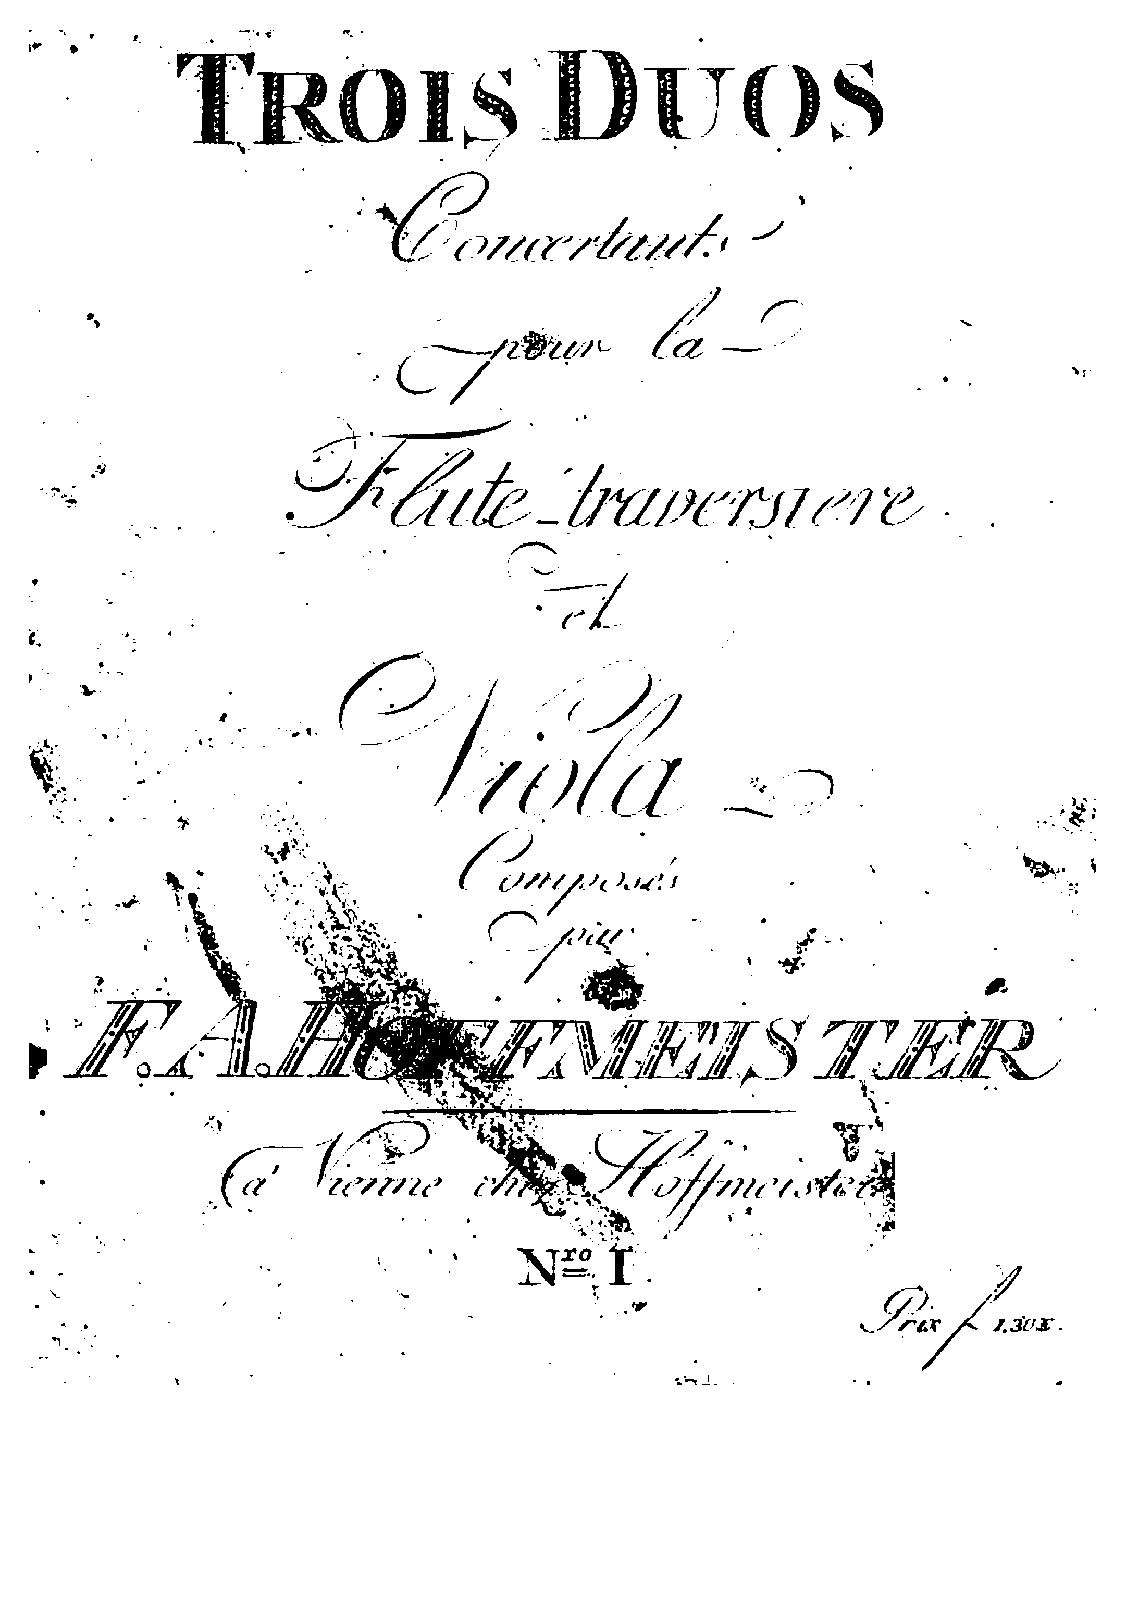 TROIS DUOS
Concertants
pour la
Flute traversiere
et
Viola
Composés
par
F. A. HOFFMEISTER
à Vienne chez Hoffmeister
Nro I
Prix f 1.30 x.